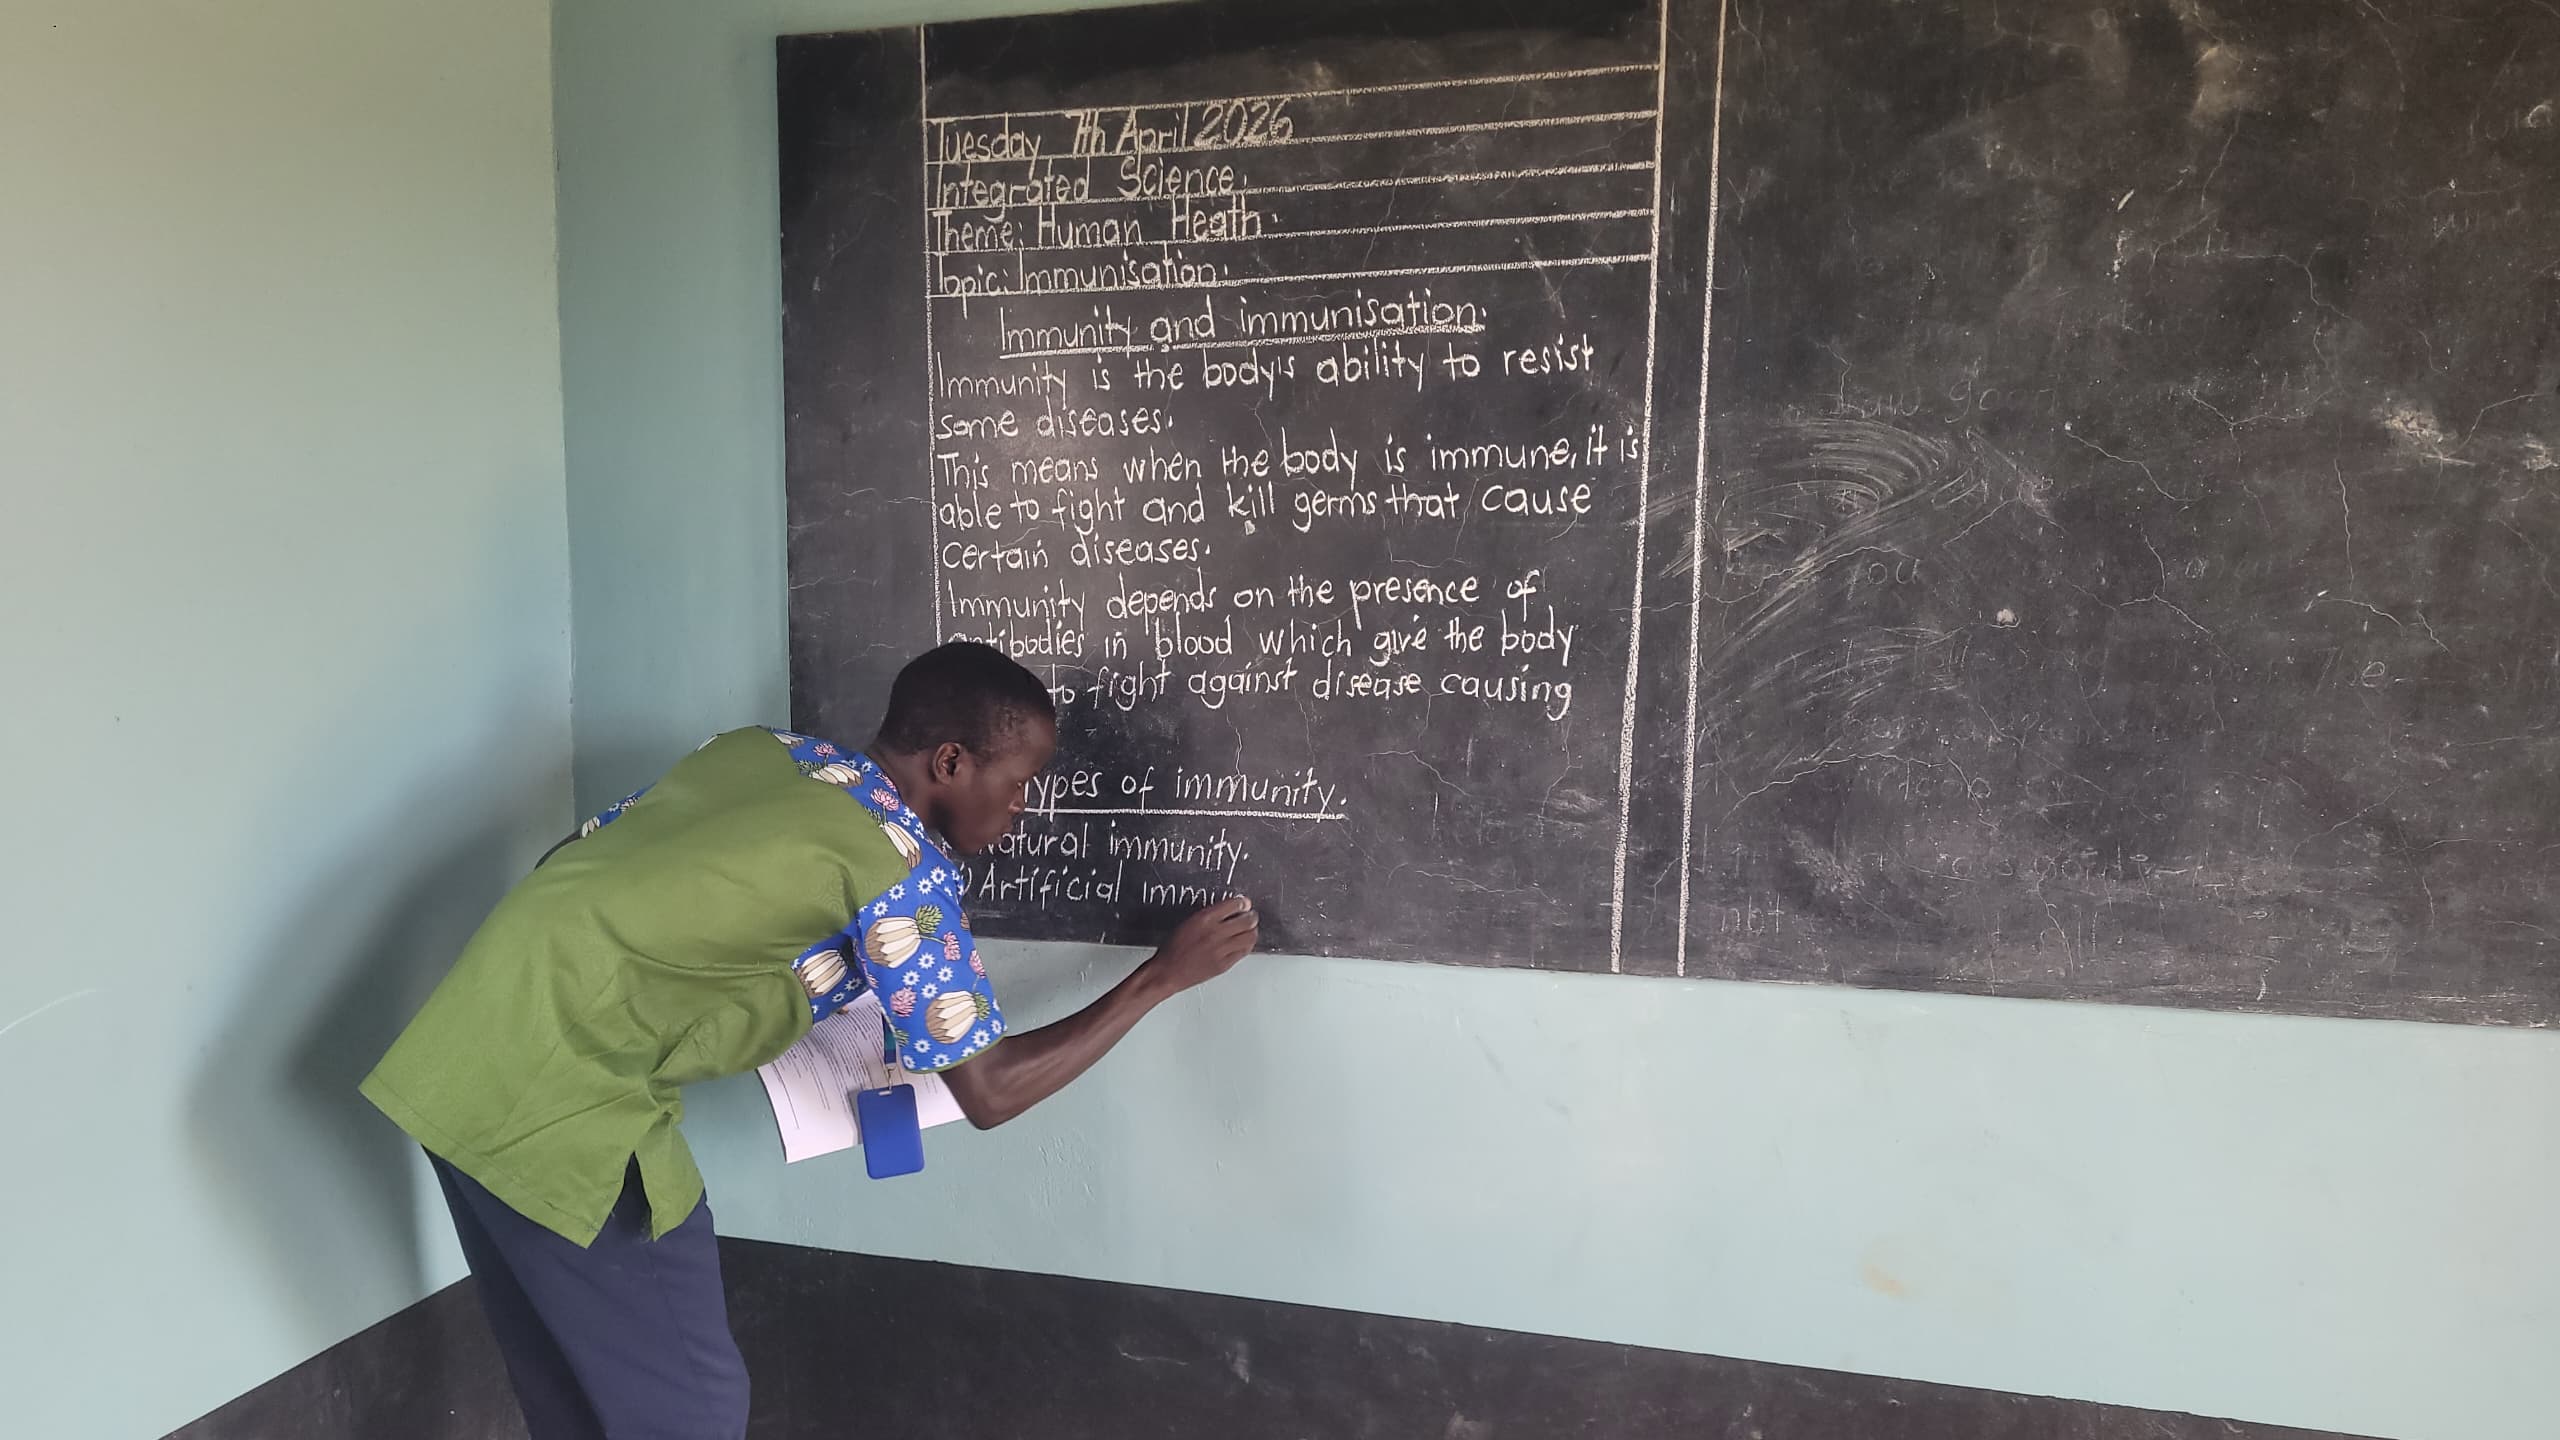 Tuesday 7th April 2026
Integrated Science.
Theme: Human Heath.
Topic: Immunisation.
Immunity and immunisation.
Immunity is the body's ability to resist
some diseases.
This means when the body is immune, it is
able to fight and kill germs that cause
certain diseases.
Immunity depends on the presence of
antibodies in blood which give the body
to fight against disease causing
Types of immunity.
Natural immunity.
Artificial immun